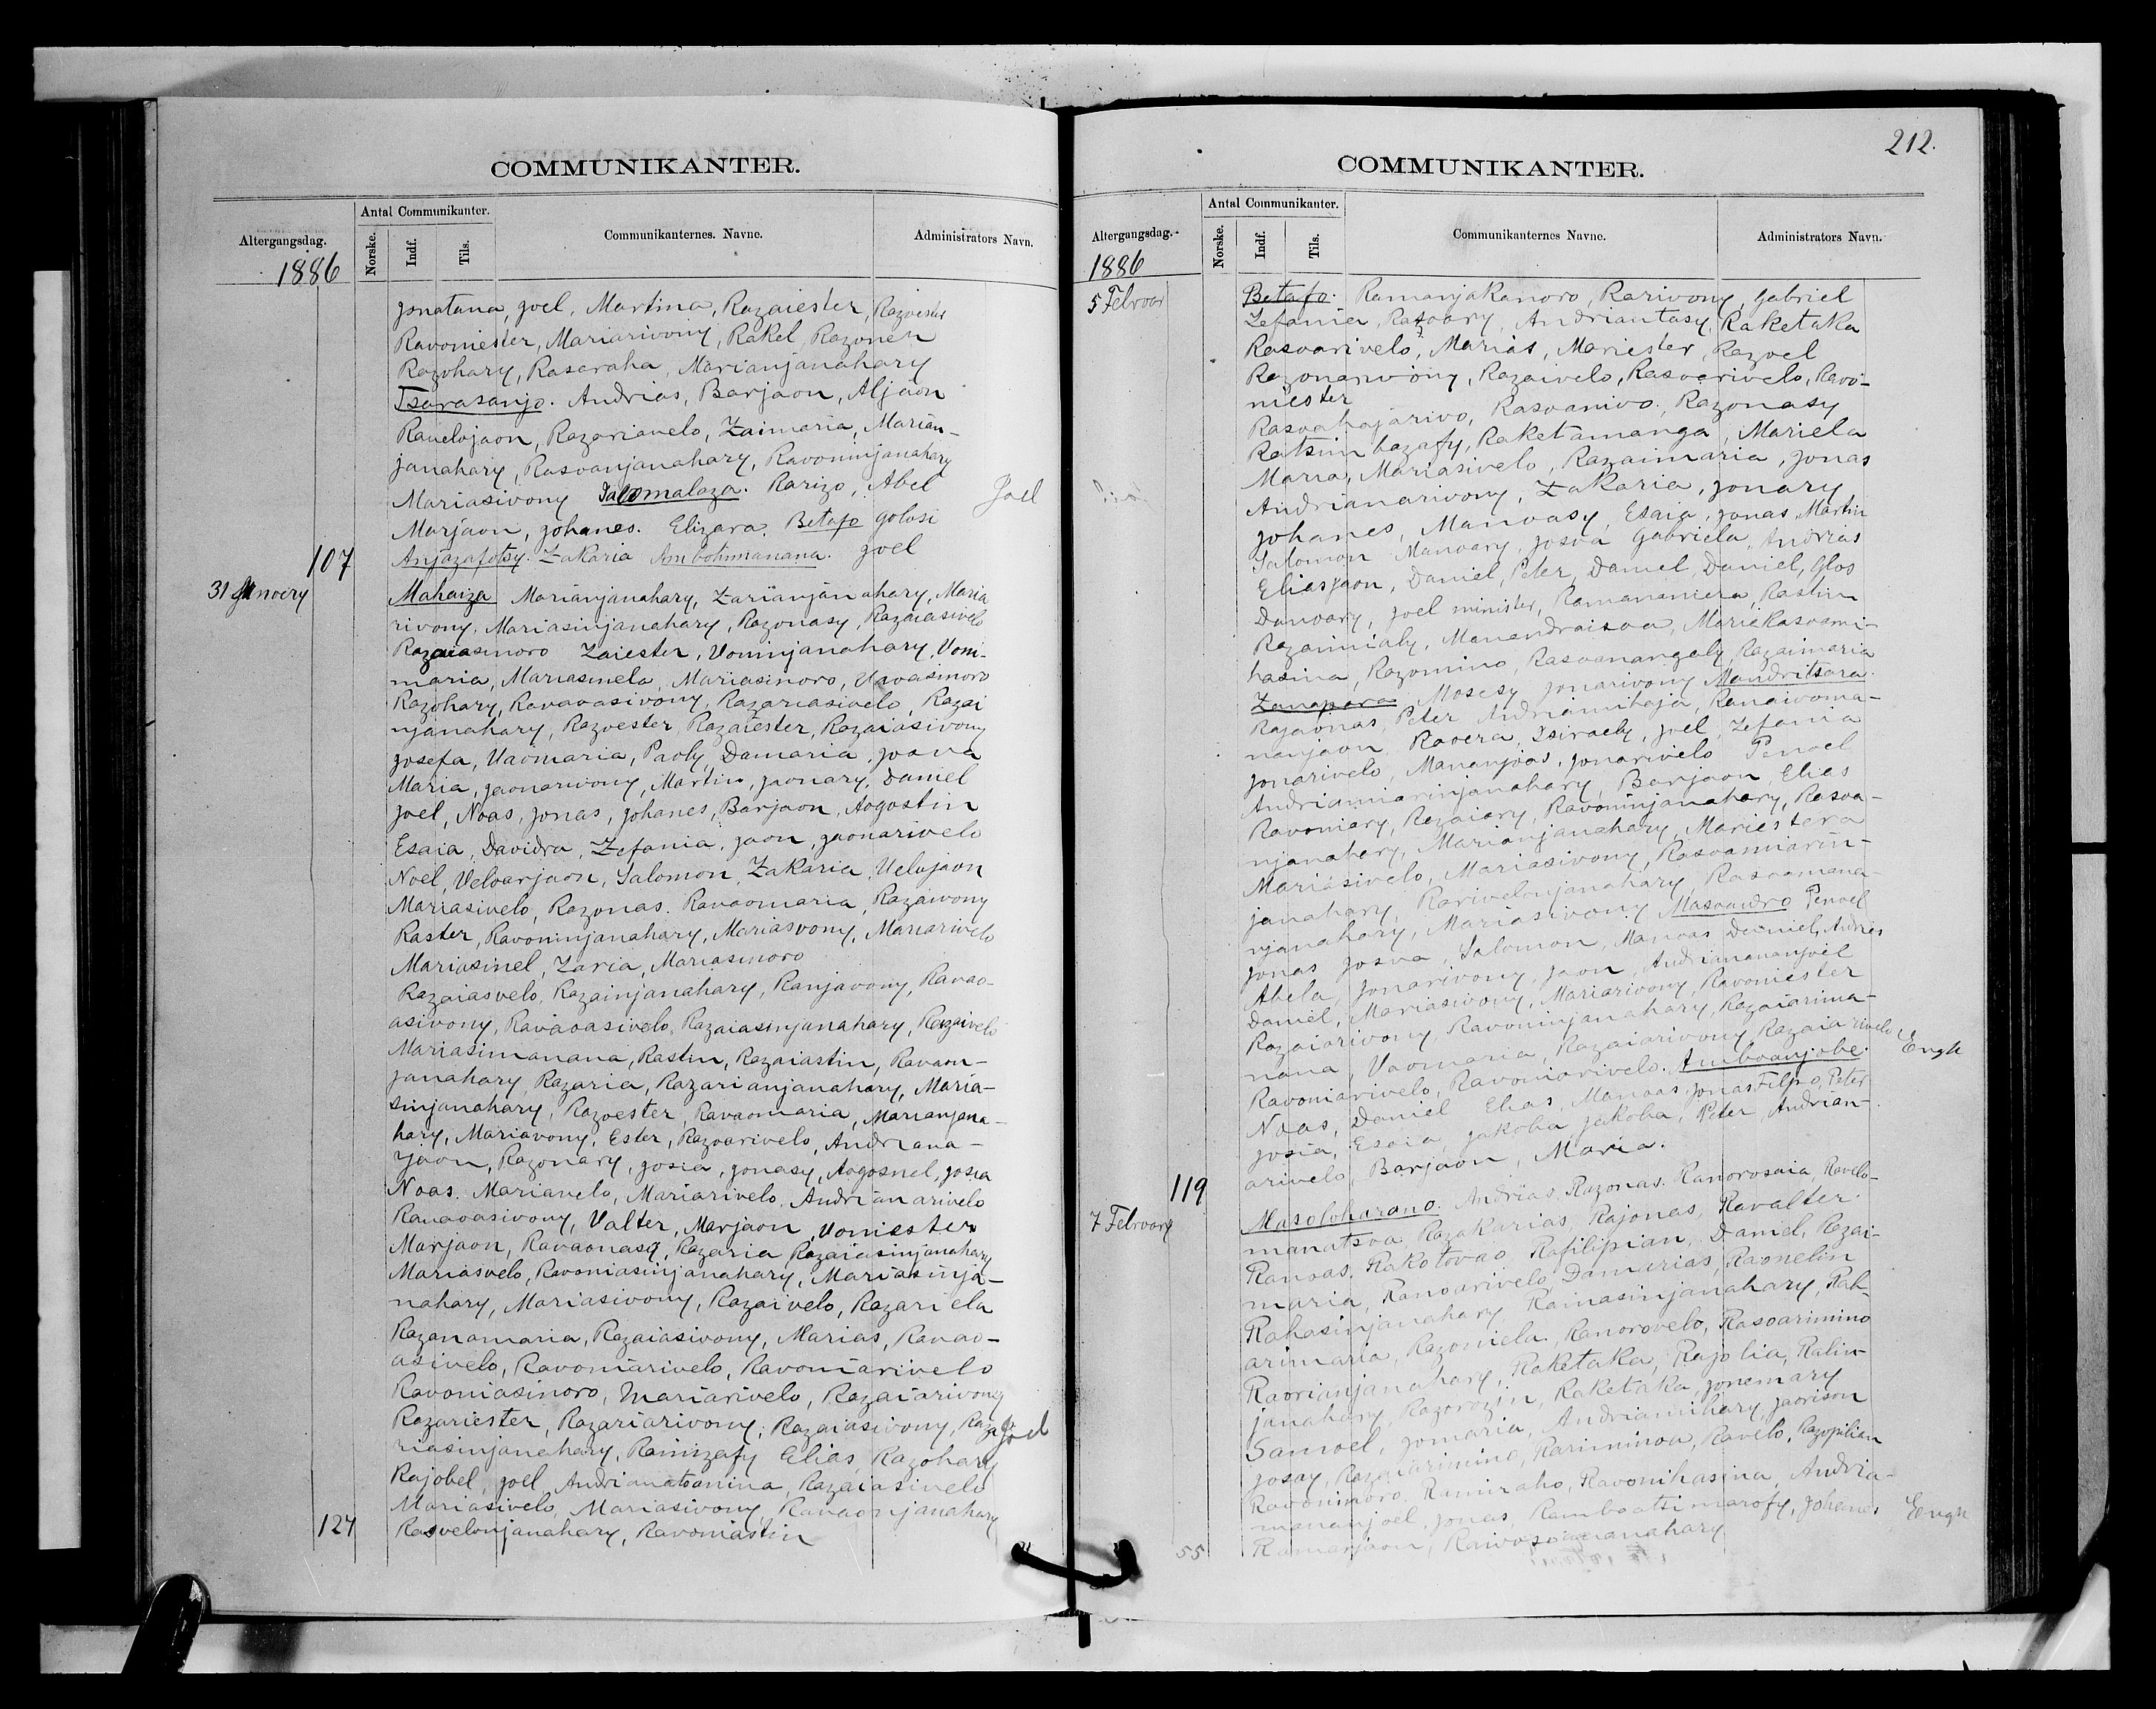 COMMUNIKANTER.
Altergangsdag.
Antal Communikanter.
Norske.
Indf.
Tils.
Communikanternes. Navne.
Administrators Navn.
1886
Jonatana, Joel, Martina, Razaiester, Razoester
Ravoniester, Mariarivony, Rakel, Razonen
Razohary, Rasaraha, Marianjanahary
Tsarasanjo. Andrias, Barjaon, Aljaon
Ravelojaon, Razarianelo, Zaimaria, Marian-
janahary, Rasoanjanahary, Ravoninjanahary
Mariasivony Ialomalaza. Rarizo, Abel Joel
Marjaon, Johanes. Elizara. Betafo Golosi
107 Anjazafotsy. Zakaria Ambohimanana. Joel
31 Janoery Mahaiza Marianjanahary, Zarianjanahary, Maria
rivony, Mariasinjanahary, Razonasy, Razaiasivelo
Razaiasinoro Zaiester, Voninjanahary, Voni-
maria, Mariasinela, Mariasinoro, Vavasinoro
Razohary, Ravaoasivony, Razariasivelo, Razai
njanahary, Razoester, Razaiester, Razaiasivony
Josefa, Vaomaria, Paoly, Damaria, Josva
Maria, Jaonarivony, Martin, Jaonary, Daniel
Joel, Noas, Jonas, Johanes, Barjaon, Aogostin
Esaia, Davidra, Zefania, Jaon, Jaonarivelo
Noel, Veloarjaon, Salomon, Zakaria, Velojaon
Mariasivelo, Razonas. Ravaomaria, Razaivony
Raster, Ravoninjanahary, Mariasvony, Mariarivelo
Mariasinel, Zaria, Mariasinoro
Razaiasvelo, Razainjanahary, Ranjavony, Ravao-
asivony, Ravaoasivelo, Razaiasinjanahary, Razaivelo
Mariasimanana, Rastin, Razaiastin, Ravaon-
janahary, Razaria, Razarianjanahary, Maria-
sinjanahary, Razoester, Ravaomaria, Marianjana-
hary, Mariavony, Ester, Razoarivelo, Andriana-
jaon, Razonary, Josia, Jonasy, Aogosnel, Josia
Noas. Marianelo, Mariarivelo, Andrianarivelo
Ravaoasivony, Valter, Marjaon, Voniester
Marjaon, Ravaonasy, Razaria, Razaiasinjanahary
Mariasvelo, Ravoniasinjanahary, Mariasinja-
nahary, Mariasivony, Razaivelo, Razariela
Razanamaria, Razaiasivony, Marias, Ravao-
asivelo, Ravoniarivelo, Ravoniarivelo
Ravoniasinoro, Mariarivelo, Razaiarivony
Razariester, Razariarivony, Razaiasivony, Raza Joel
riasinjanahary, Rainizafy Elias, Razohary
Rajobel, Joel, Andrianatoanina, Razaiasinelo
Mariasivelo, Mariasivony, Ravaonjanahary
124 Rasvelonjanahary, Ravoniastin
212.
COMMUNIKANTER.
Altergangsdag.
Antal Communikanter.
Norske.
Indf.
Tils.
Communikanternes Navne.
Administrators Navn.
1886
5 Febroar Betafo. Ramanjakanoro, Rarivony, Gabriel
Zefania, Razoary, Andriantasy, Raketaka
Rasoarivelo, Marias, Mariester, Razoel
Razonarivony, Razaivelo, Rasoarivelo, Ravo-
niester
Rasoahajarivo, Rasoanivo, Razonasy
Ratsimbazafy, Raketamanga, Mariela
Maria, Mariasivelo, Razaimaria, Jonas
Andrianarivony, Zakaria, Jonary
Johanes, Manoasy, Esaia, Jonas, Martin
Salomon Manoary, Josoa Gabriela, Andrias
Eliasjaon, Daniel, Peter, Daniel, Daniel, Glos
Danoary, Joel minister, Ramananiera, Rastin
Razainialy, Manandraisoa, Maria Rasoami-
hasina, Razomino, Rasoanangaly, Razaimaria
Zanapara Mosesy Jonarivony Mandritsara
Rajaonas, Peter Andriamihaja, Ranaivoma-
nanjaon, Raoera, Dsiraely, Joel, Zefania
Jonarivelo, Mananjoas, Jonarivelo Penoel
Andriamiarinjanahary, Barjaon, Elias
Ravoniary, Razaiary, Ravoninjanahary, Rasoa-
njanahary, Marianjanahary, Mariestera
Mariasivelo, Mariasivony, Rasoamiarin-
janahary, Rarivelonjanahary, Rasoamana-
njanahary, Mariasivony Masoandro Penoel
Jonas Josva, Salomon, Manoas Daniel, Andrias
Abela, Jonarivony, Jaon, Andriamananjoel
Daniel, Mariasivony, Mariarivony, Ravoniester
Razaiarivony Ravoninjanahary, Razaiarima-
nana, Vaomaria, Razaiarivony Razaiarivelo, Engh
Ravoniarivelo, Ravoniarivelo. Amboanjobe.
Noas, Daniel Elias, Manoas, Jonas Filpo, Peter
Josia, Esaia, Jakoba Jakoba, Peter, Andrian-
arivelo, Barjaon, Maria.
119
7 Febroary Masoloharano. Andrias Razonas. Ranorosaia, Ravelo-
manatsoa Razakarias Rajonas, Ravalter
Ranoas. Rakotovao Rafilipian, Daniel, Razai-
maria, Ranoarivelo, Damerias, Raonelin
Rahasinjanahary Rainasinjanahary, Rak-
arimaria, Razoniela. Ranorovelo, Rasoarimino
Raorianjanahary, Raketaka, Rajolia, Ralin-
janahary Razorozin, Raketaka, Jonemary
Samoel, Jomaria, Andriamihary, Jaorison
Josay, Razaiarimino, Rariminoa, Ravelo, Razopilian
Ravonimoro, Ramiraho, Ravonihasina, Andria-
mananjoel, Jonas, Ramboatsimarofy, Johanes Eengh
55 Ramarjaon, Raivosoamanahary